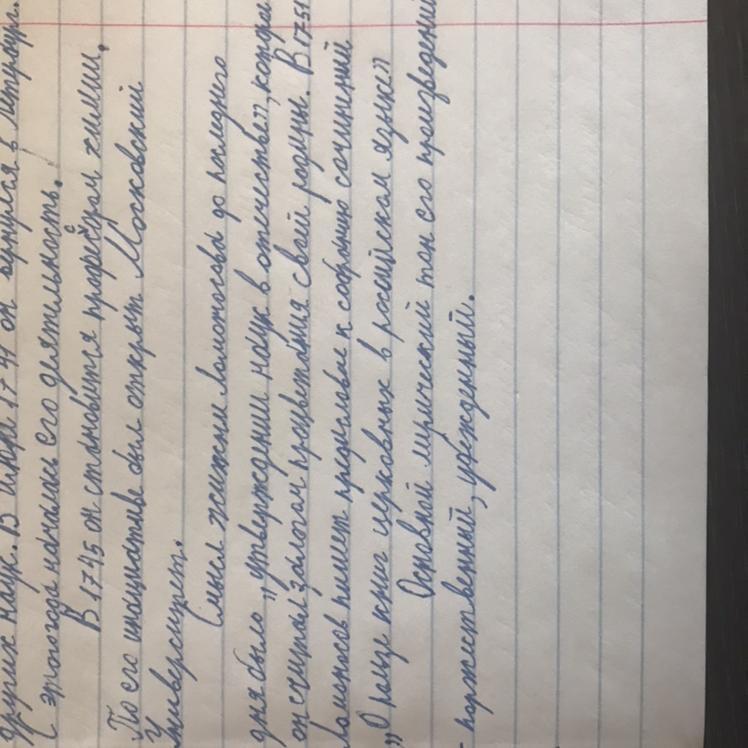 других наук. В июн 1741 он вернулся в Петербург.
С этого года началась его деятильность.
В 1745 он становится профессором химии.
По его инициативе был открыт Московский
Университет.
Смысл жизни Ломоносова до последнего
дня было „утверждении наук в отечестве", которые
он считал залогом процветания своей родины. В 1751
Ломоносов пишет предисловие к собранию сочинений
„О пользе книг церковных в российском языке"
Основной лирический тон его произведений
- торжественный, убежденный.